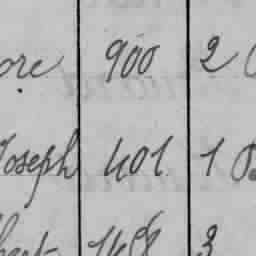 ore 900 2
Joseph 401 1
1458 3